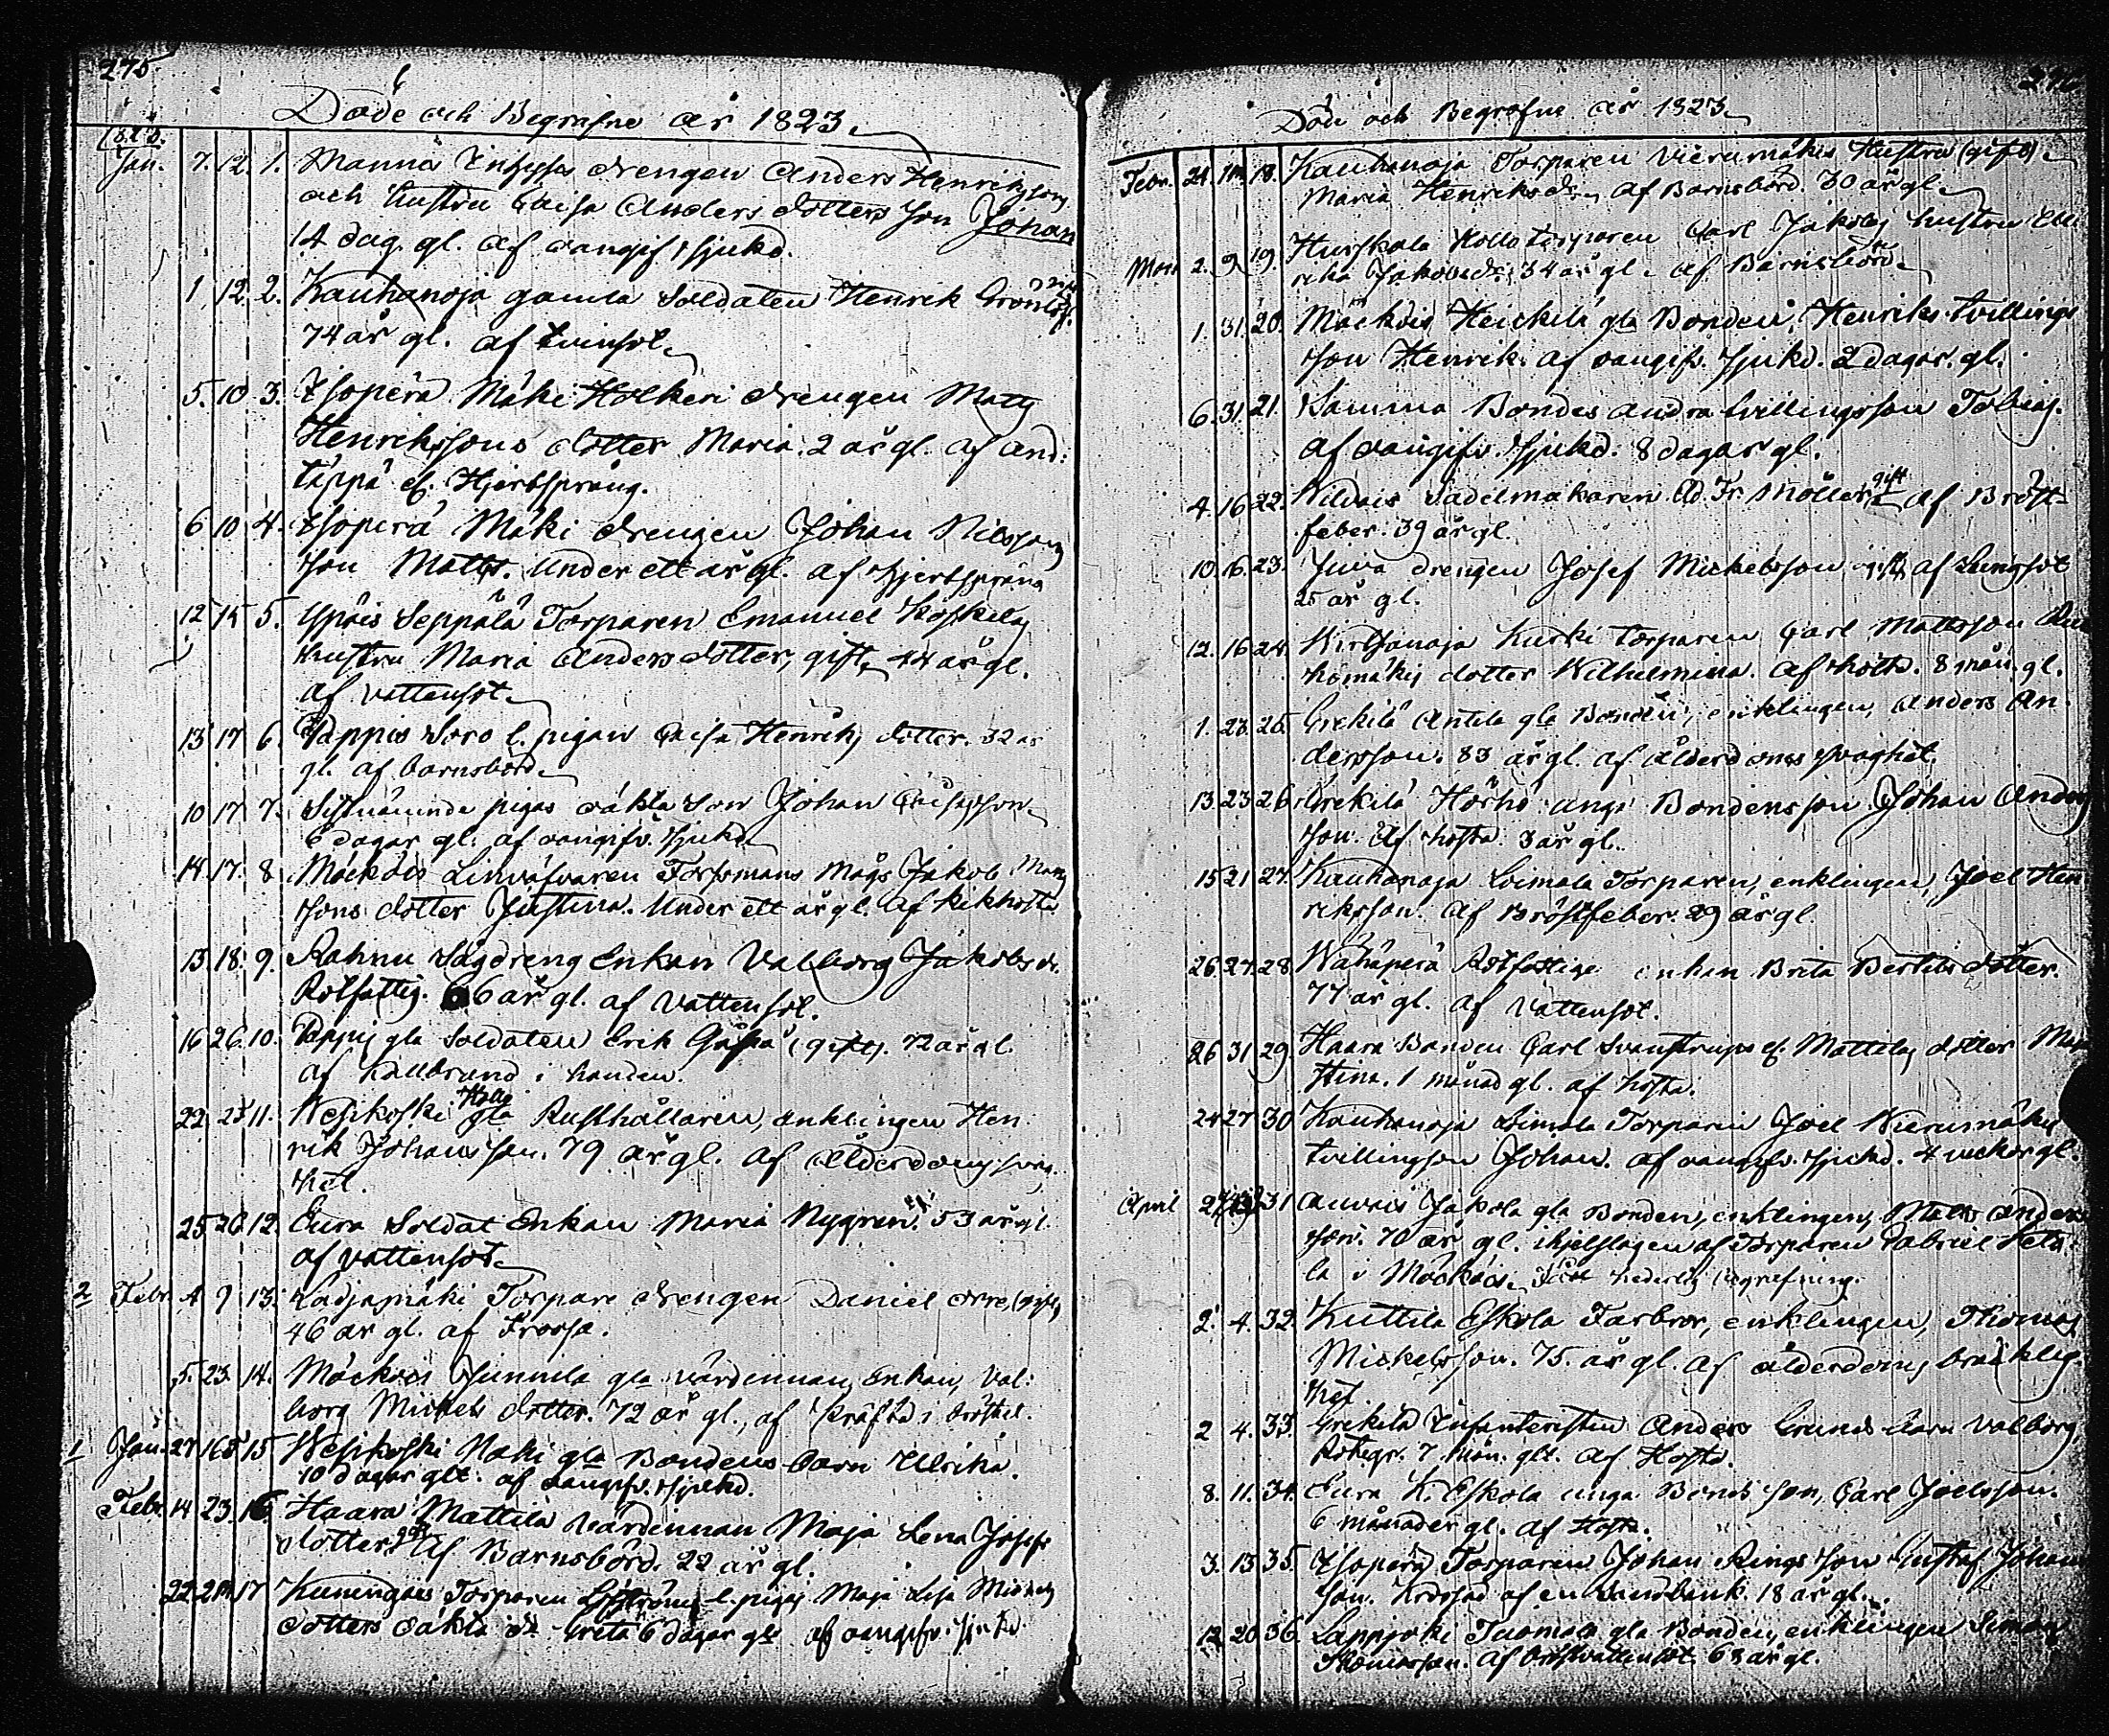 275
Döde och Begrafne år 1823.
Jan. 7. 12. 1. Mannä drengen Anders Henrikssons
och hustru Caisa Anders dotters son Johan
14 dag. gl. af oangif. sjukd.
1. 12. 2. Kauhanoja gamla Soldaten Henrik
74 år gl. af tvinsot.
5. 10. 3. Isoperä Mäki Holkeri drengen Matts
Henrikssons dotter Maria. 2 år gl. af and:
täppa el. Hjertsprång.
6. 10. 4. Isoperä Mäki drengen Johan Nilssons
son Matts. under ett år gl. af hjertsprång
12. 15. 5. Ypäis Seppälä Torparen Emanuel Koskelas
hustru Maria Anders dotter, gift, 44 år gl.
af vattensot.
13. 17. 6. Pappis Soro l. pigan Caisa Henriks dotter. 32 år
gl. af barnsbörd.
10. 17. 7. Sistnämnda pigas oäkta son Johan Caisasson
6 dagar gl. af oangifv. sjukd.
14. 17. 8. Mäckäis Linväfvaren Forssmans mågs Jakob Matts
sons dotter Justina. Under ett år gl. af kikhosta
13. 18. 9. Rahnu Sågdreng Enkan Valborg Jakobsdr.
Rotfattig. 66 år gl. af vattensot.
16. 26. 10. Pappis gla Soldaten Erik (gift). 72 år gl.
af kallbrand i handen.
22. 25. 11. Vesikoski gla Rusthållaren, enklingen Hen
rik Johansson. 79 år gl. af ålderdoms svag
het.
25. 26. 12. Eura Soldat Enkan Maria Nygren. 53 år gl.
af vattensot.
2 Febr. 4. 9. 13. Torpare drengen Daniel (gift)
46 år gl. af Frossa.
5. 23. 14. Mäckäis Junnila gla värdinnan, Enkan, Val:
borg Mickels dotter. 72 år gl., af kräfta i bröstet.
1 Jan. 27. 15 Vesikoski gla Bondens barn Ulrika.
10 dagar glt. af oangifv. sjukd.
Febr. 14. 23. 16 Haara Mattila värdinnan Maja Lena Josefs
dotter, gift af Barnsbörd. 22 år gl.
22. 17 Kuningais Torparen l. pigas Maja Lisa Mickels
dotters oäkta dr Greta 6 dagar gl. af oangifv. sjukd.
Döde och Begrafne år 1823
Febr. 24. 18. Kauhanoja Torparen Vierumäkis Hustru (gift)
Maria Henriksdr. af Barnsbörd. 30 år gl.
Mars 2. 9. 19. Torparen Carl Jakobs hustru Ul
rika Jakobsdr. 34 år gl. af Barnsbörd.
1. 31. 20. Mäckäis Heickilä gla Bonden, Henriks tvillings
son Henrik. af oangifv. sjukd. 2 dagar. gl.
6. 31. 21. Samma Bondes andra tvillingsson Tobias.
af oangifv. sjukd. 8 dagar gl.
4. 16. 22. Sadelmakaren Ad. Fr. Möller, gift af Bröst-
feber. 39 år gl.
10. 16. 23. Juva drengen Josef Mickelsson, gift, af Lungsot
25 år gl.
12. 16. 24. Virtsanoja Kurki torparen Carl Mattsson
dotter Wilhelmina. af hosta. 8 mån. gl.
1. 23. 25. Crekilä Antila gla Bonden, enklingen, Anders An
dersson. 83 år gl. af ålderdoms svaghet.
13. 23. 26. Crekilä Hörhö unga Bondens son Johan Anders
son. Af hosta. 3 år gl.
15. 21. 27. Kauhanoja Loimala Torparen, enklingen, Joel Hen
riksson. af Bröstfeber. 29 år gl.
26. 27. 28. Vähäperä Rotfattige enkan Brita Bertils dotter.
77 år gl. af Vattensot.
26. 31. 29. Haara Bonden Carl el. Mattilas dotter Maja
Stina. 1 månad gl. af hosta.
24. 27. 30 Kauhanoja Limola Torparen Joel Vierumäkis
tvillingson Johan. af oangifv. sjukd. 4 veckor gl.
April 31 Auvais Jakola gla Bonden, enklingen, Matts Anders
son. 70 år gl. ihjelslagen af Torparen Gabriel
la i Mäckäis. Fått hederlig begrafning.
2. 4. 32. Kuttila Eskola Farbror, enklingen, Thomas
Mickelsson. 75. år gl. af ålderdoms bräcklig
het.
2 4. 33. Crekilä Infanteristen Anders Grunds barn Valborg
7. mån. glt. af Hosta.
8. 11. 34. Eura K. Eskola unga Bonds son, Carl Joelsson.
6 månader gl. af Hosta.
3. 13. 35. Isoperä Torparen Johan Rings son Gustaf Johans
son. Krossad af en Sandbank. 18 år gl.
12. 20. 36. Lappijoki Tuomola gla Bonden, enklingen Simon
Thomasson. af bröstvattensot 63 år gl.